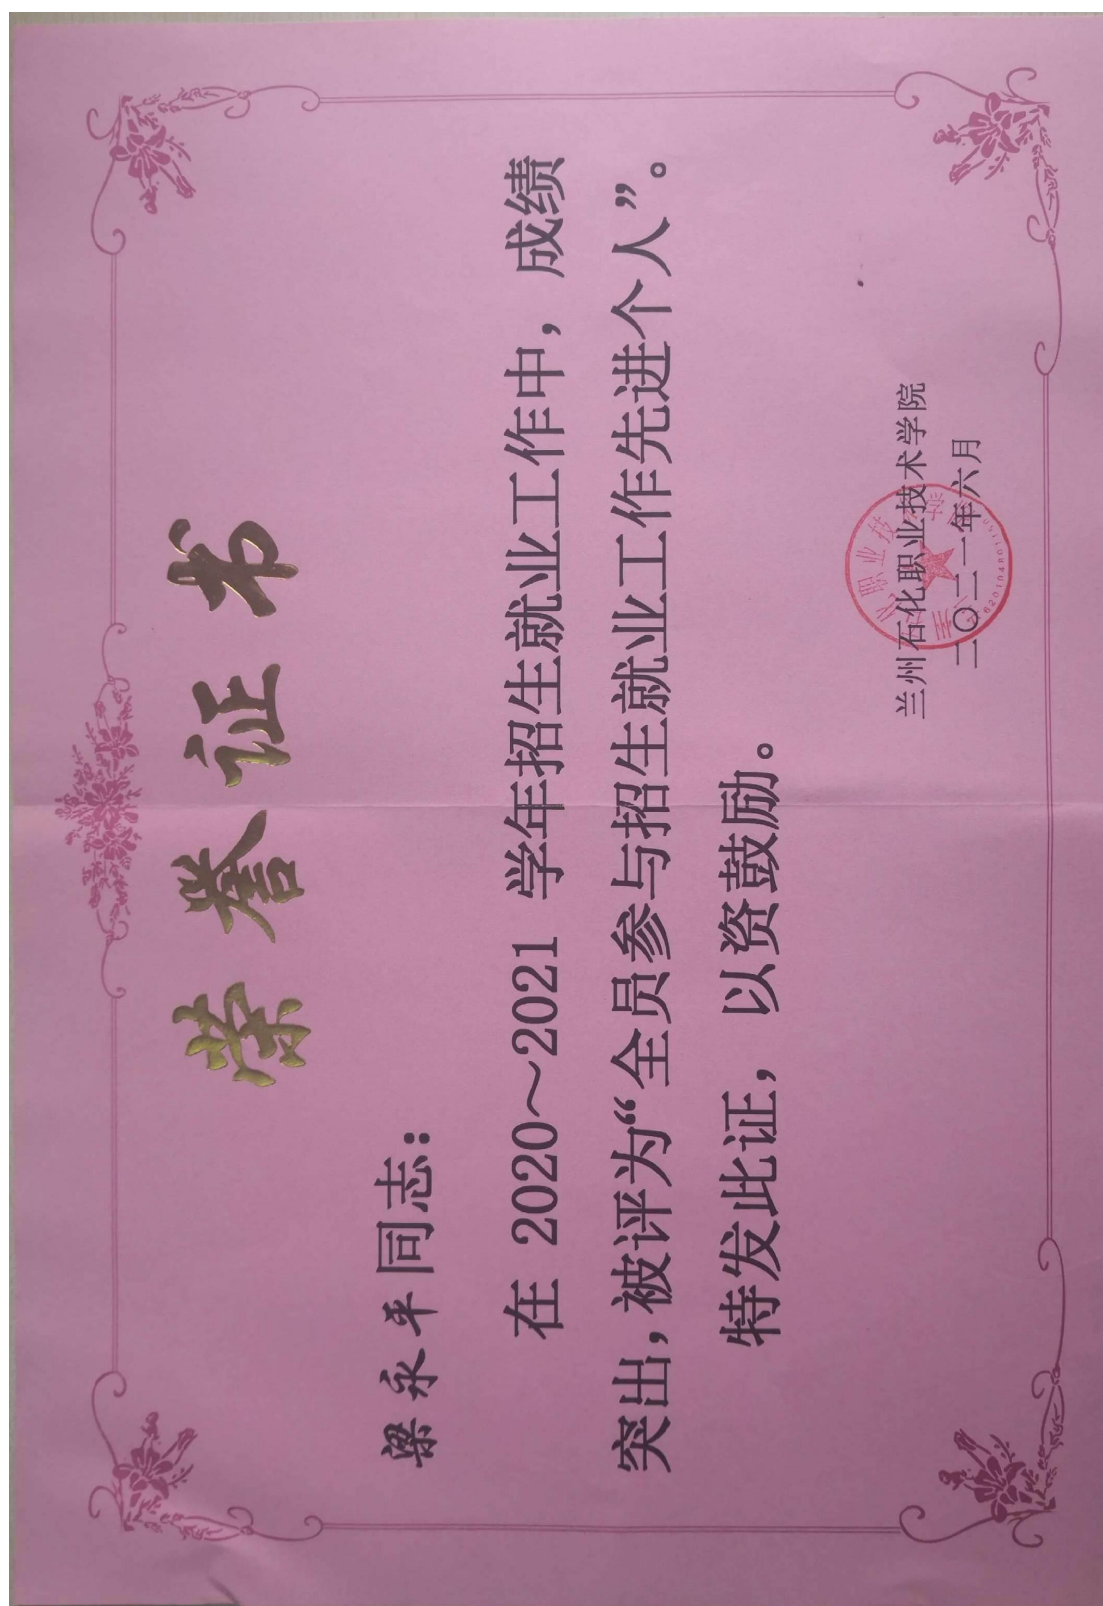 荣誉证书
梁永平同志：
在 2020～2021 学年招生就业工作中，成绩
突出，被评为“全员参与招生就业工作先进个人”。
特发此证，以资鼓励。
兰州石化职业技术学院
二〇二一年六月